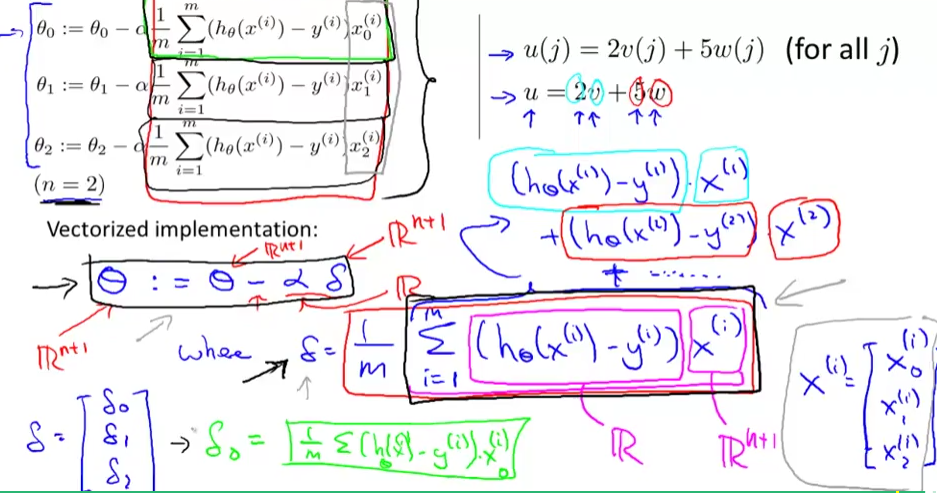 θ₀ := θ₀ − α 1/m ∑_{i=1}^{m} (h_θ(x^{(i)}) − y^{(i)}) x₀^{(i)}
θ₁ := θ₁ − α 1/m ∑_{i=1}^{m} (h_θ(x^{(i)}) − y^{(i)}) x₁^{(i)}
θ₂ := θ₂ − α 1/m ∑_{i=1}^{m} (h_θ(x^{(i)}) − y^{(i)}) x₂^{(i)}
(n = 2)
→ u(j) = 2v(j) + 5w(j) (for all j)
→ u = 2v + 5w
↑ ↑↑ ↑↑
(h_θ(x^{(1)}) − y^{(1)}) · x^{(1)}
+ (h_θ(x^{(2)}) − y^{(2)}) x^{(2)}
+ .......
Vectorized implementation:
ℝ^{n+1} ℝ^{n+1}
→ θ := θ − α δ
ℝ^{n+1} ℝ
where δ = 1/m ∑_{i=1}^{m} (h_θ(x^{(i)}) − y^{(i)}) x^{(i)}
ℝ ℝ^{n+1}
x^{(i)} = [x₀^{(i)} x₁^{(i)} x₂^{(i)}]
δ = [δ₀ δ₁ δ₂] → δ₀ = 1/m ∑ (h_θ(x^{(i)}) − y^{(i)}) · x₀^{(i)}